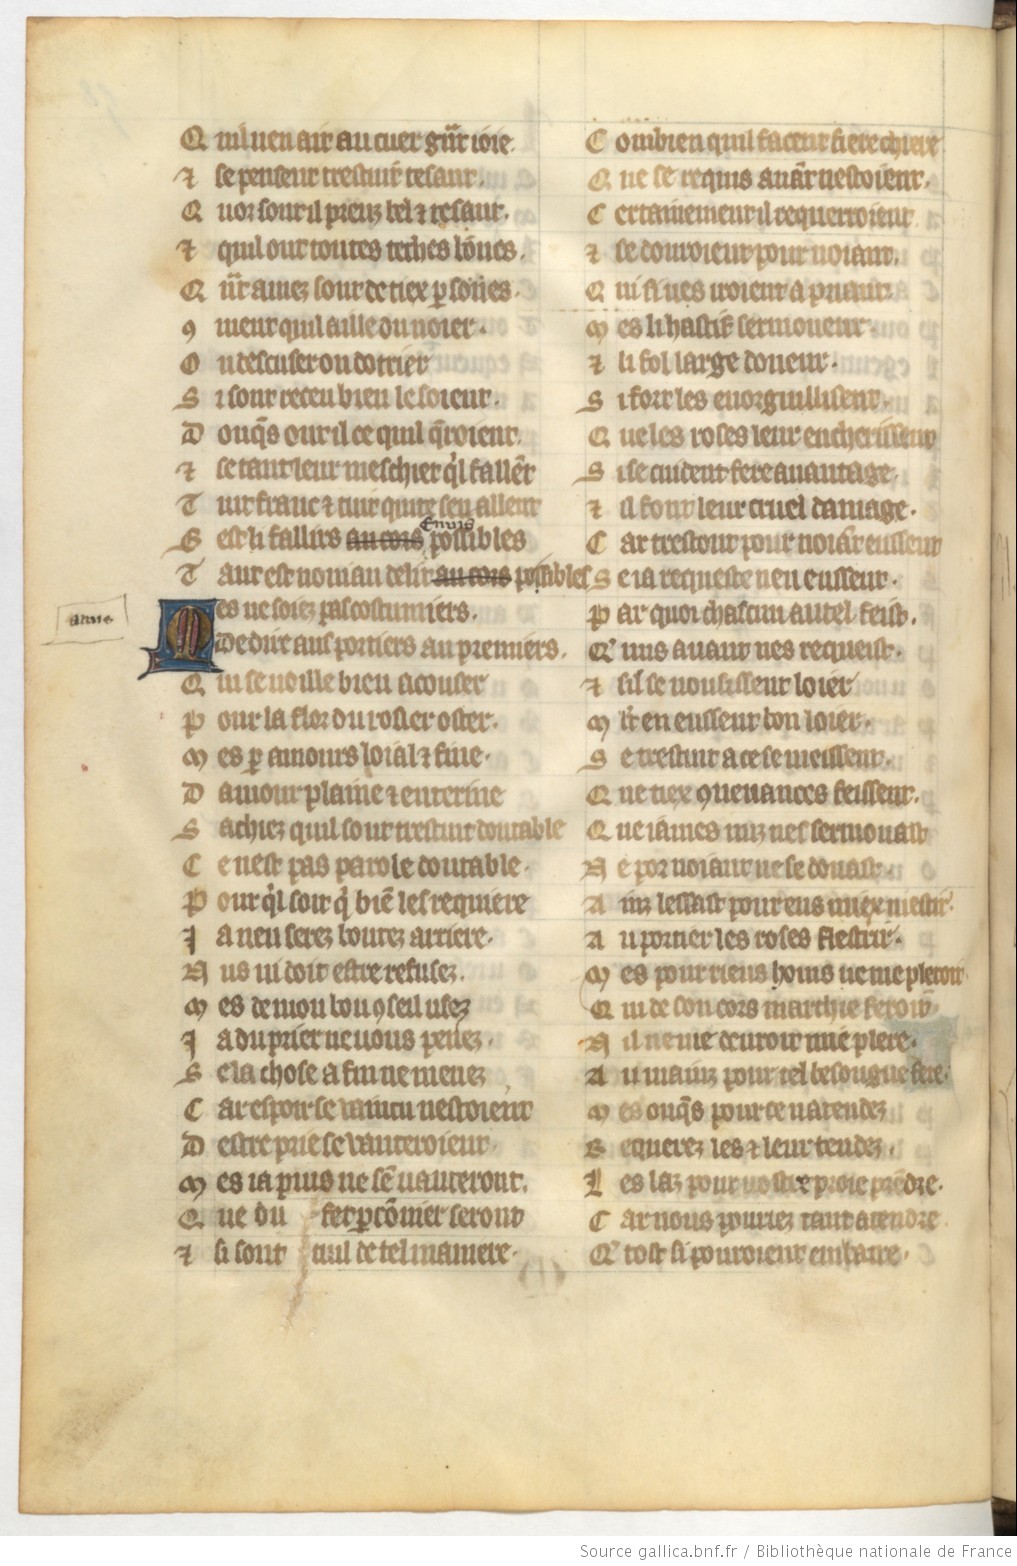 Q uil uen air au cuer gñt ioie
⁊ se penseut trestuit tesaut.
Q uor sont il preuz bel ⁊ tesaut.
⁊ quil out toutes teches bones.
Q ñt amez sont de tiex ꝑsones.
ꝯ uient quil aille du noier.
O u descuser ou dotrier
S i sont receu bien le soient.
D ouqs out il ce quil qroient.
⁊ se tant leur meschiet ql fallet
T uit franc ⁊ tuit quite sen allent
S est li fallirs au cors possibles
Enuis
T ant est nouiau delit au cors possibles
M es ne soiez pas costumiers.
anus
De dire aus portiers au premiers.
Q ui se uoille bien acouser
P our la flor du rosier oster.
M es ꝑ amours loial ⁊ fine.
D amour plaine ⁊ enterine
S achiez quil sont trestuit doutable
C e nest pas parole doutable.
P our ql soit q bie les requiere
J a neu serez boutez arriere.
N us ni doit estre refusez.
M es de mon bon ꝯseil usez
J a du prier ne uous penez.
S e la chose a fin ne menez
C ar espoir se uaincu nestoient
D estre prie se uanteroient.
M es ia puis ne se uanteront.
Q ue du fet ꝑcomier seront
⁊ si sont tuil de tel maniere.
C ombien quil facent fiere chiere
Q ue se requis auat nestoient.
C ertainement il requerroient
⁊ se donroient pour noiant.
Q ui si nes iroient apriant.
M es li hastif sermoneur.
⁊ li fol large doneur.
S i fort les enorguillissent.
Q ue les roses leur encherissent
S i se cuident fere auantage.
⁊ il font leur cruel damage.
C ar trestout pour noiat eussent
S e ia requeste neu eussent.
P ar quoi chascun autel feist.
Q' nus auant nes requeist.
⁊ sil se uousissent loier
M lt en eussent bon loier.
S e trestuit a ce se meissent.
Q ue tiex ꝯuenances feissent.
Q ue iames nuz nes sermonast
N e por noiant ne se donast.
A inz lessast pour eus miex mestir.
A u portier les roses flestrir.
M es pour riens homs ne me pleroit
Q ui de son cors marchie feroit.
N il ne me deuroit mie plere.
A u mainz pour tel besougne fere.
M es ouqs pour ce natendez
R equerez les ⁊ leur tendez.
L es laz pour uostre proie predre.
C ar nous pouriez tant atendre
Q' tost si pouroient enbatre.
Source gallica.bnf.fr / Bibliothèque nationale de France